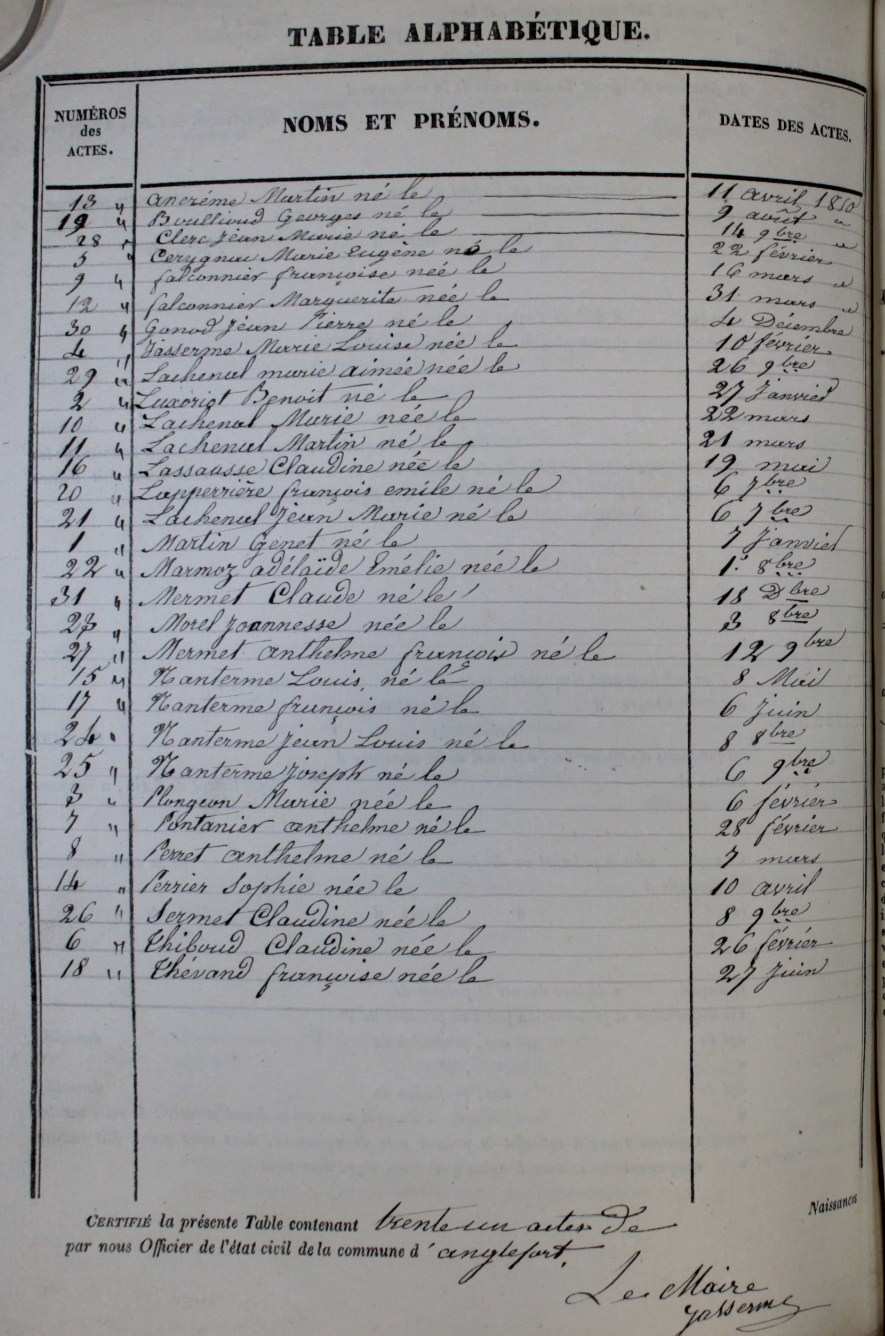 TABLE ALPHABÉTIQUE.
NUMÉROS des ACTES. NOMS ET PRÉNOMS. DATES DES ACTES.
13 " ancréme Martin né le 11 avril 1850
19 " Boullioud Georges né le 9 août "
28 " Clerc Jean Marie né le 14 9bre "
5 " Marie Eugène né le 22 février
9 " falconnier françoise née le 16 mars "
12 " falconnier Marguerite née le 31 mars "
30 " Gonod Jéan Pierre né le 4 Décembre
4 " Jasserme Marie Louise née le 10 février
29 " Lachenal marie aimée née le 26 9bre
2 " Benoit né le 27 Janvier
10 " Lachenal Marie née le 22 mars
11 " Lachenal Martin né le 21 mars
16 " Lassausse Claudine née le 19 mai
20 " Lapperrière françois emile né le 6 7bre
21 " Lachenal Jéan Marie né le 6 7bre
1 " Martin Genet né le 7 Janvier
22 " Marmoz adélaïde Emélie née le 1. 8bre
31 " Mermet Claude né le 18 Dbre
23 " Morel Joannesse née le 3 8bre
27 " Mermet anthelme françois né le 12 9bre
15 " Nanterme Louis né le 8 Mai
17 " Nanterme françois né le 6 Juin
24 " Nanterme Jean Louis né le 8 8bre
25 " Nanterme Joseph né le 6 9bre
3 " Plongeon Marie née le 6 février
7 " Pontanier anthelme né le 28 février
8 " Perret anthelme né le 7 mars
14 " Perrier Sophie née le 10 avril
26 " Sermet Claudine née le 8 9bre
6 " Thiboud Claudine née le 26 février
18 " Thévand françoise née le 27 Juin
Naissances
CERTIFIÉ la présente Table contenant trente un actes de
par nous Officier de l'état civil de la commune d'anglefort.
Le Maire
Jasserme